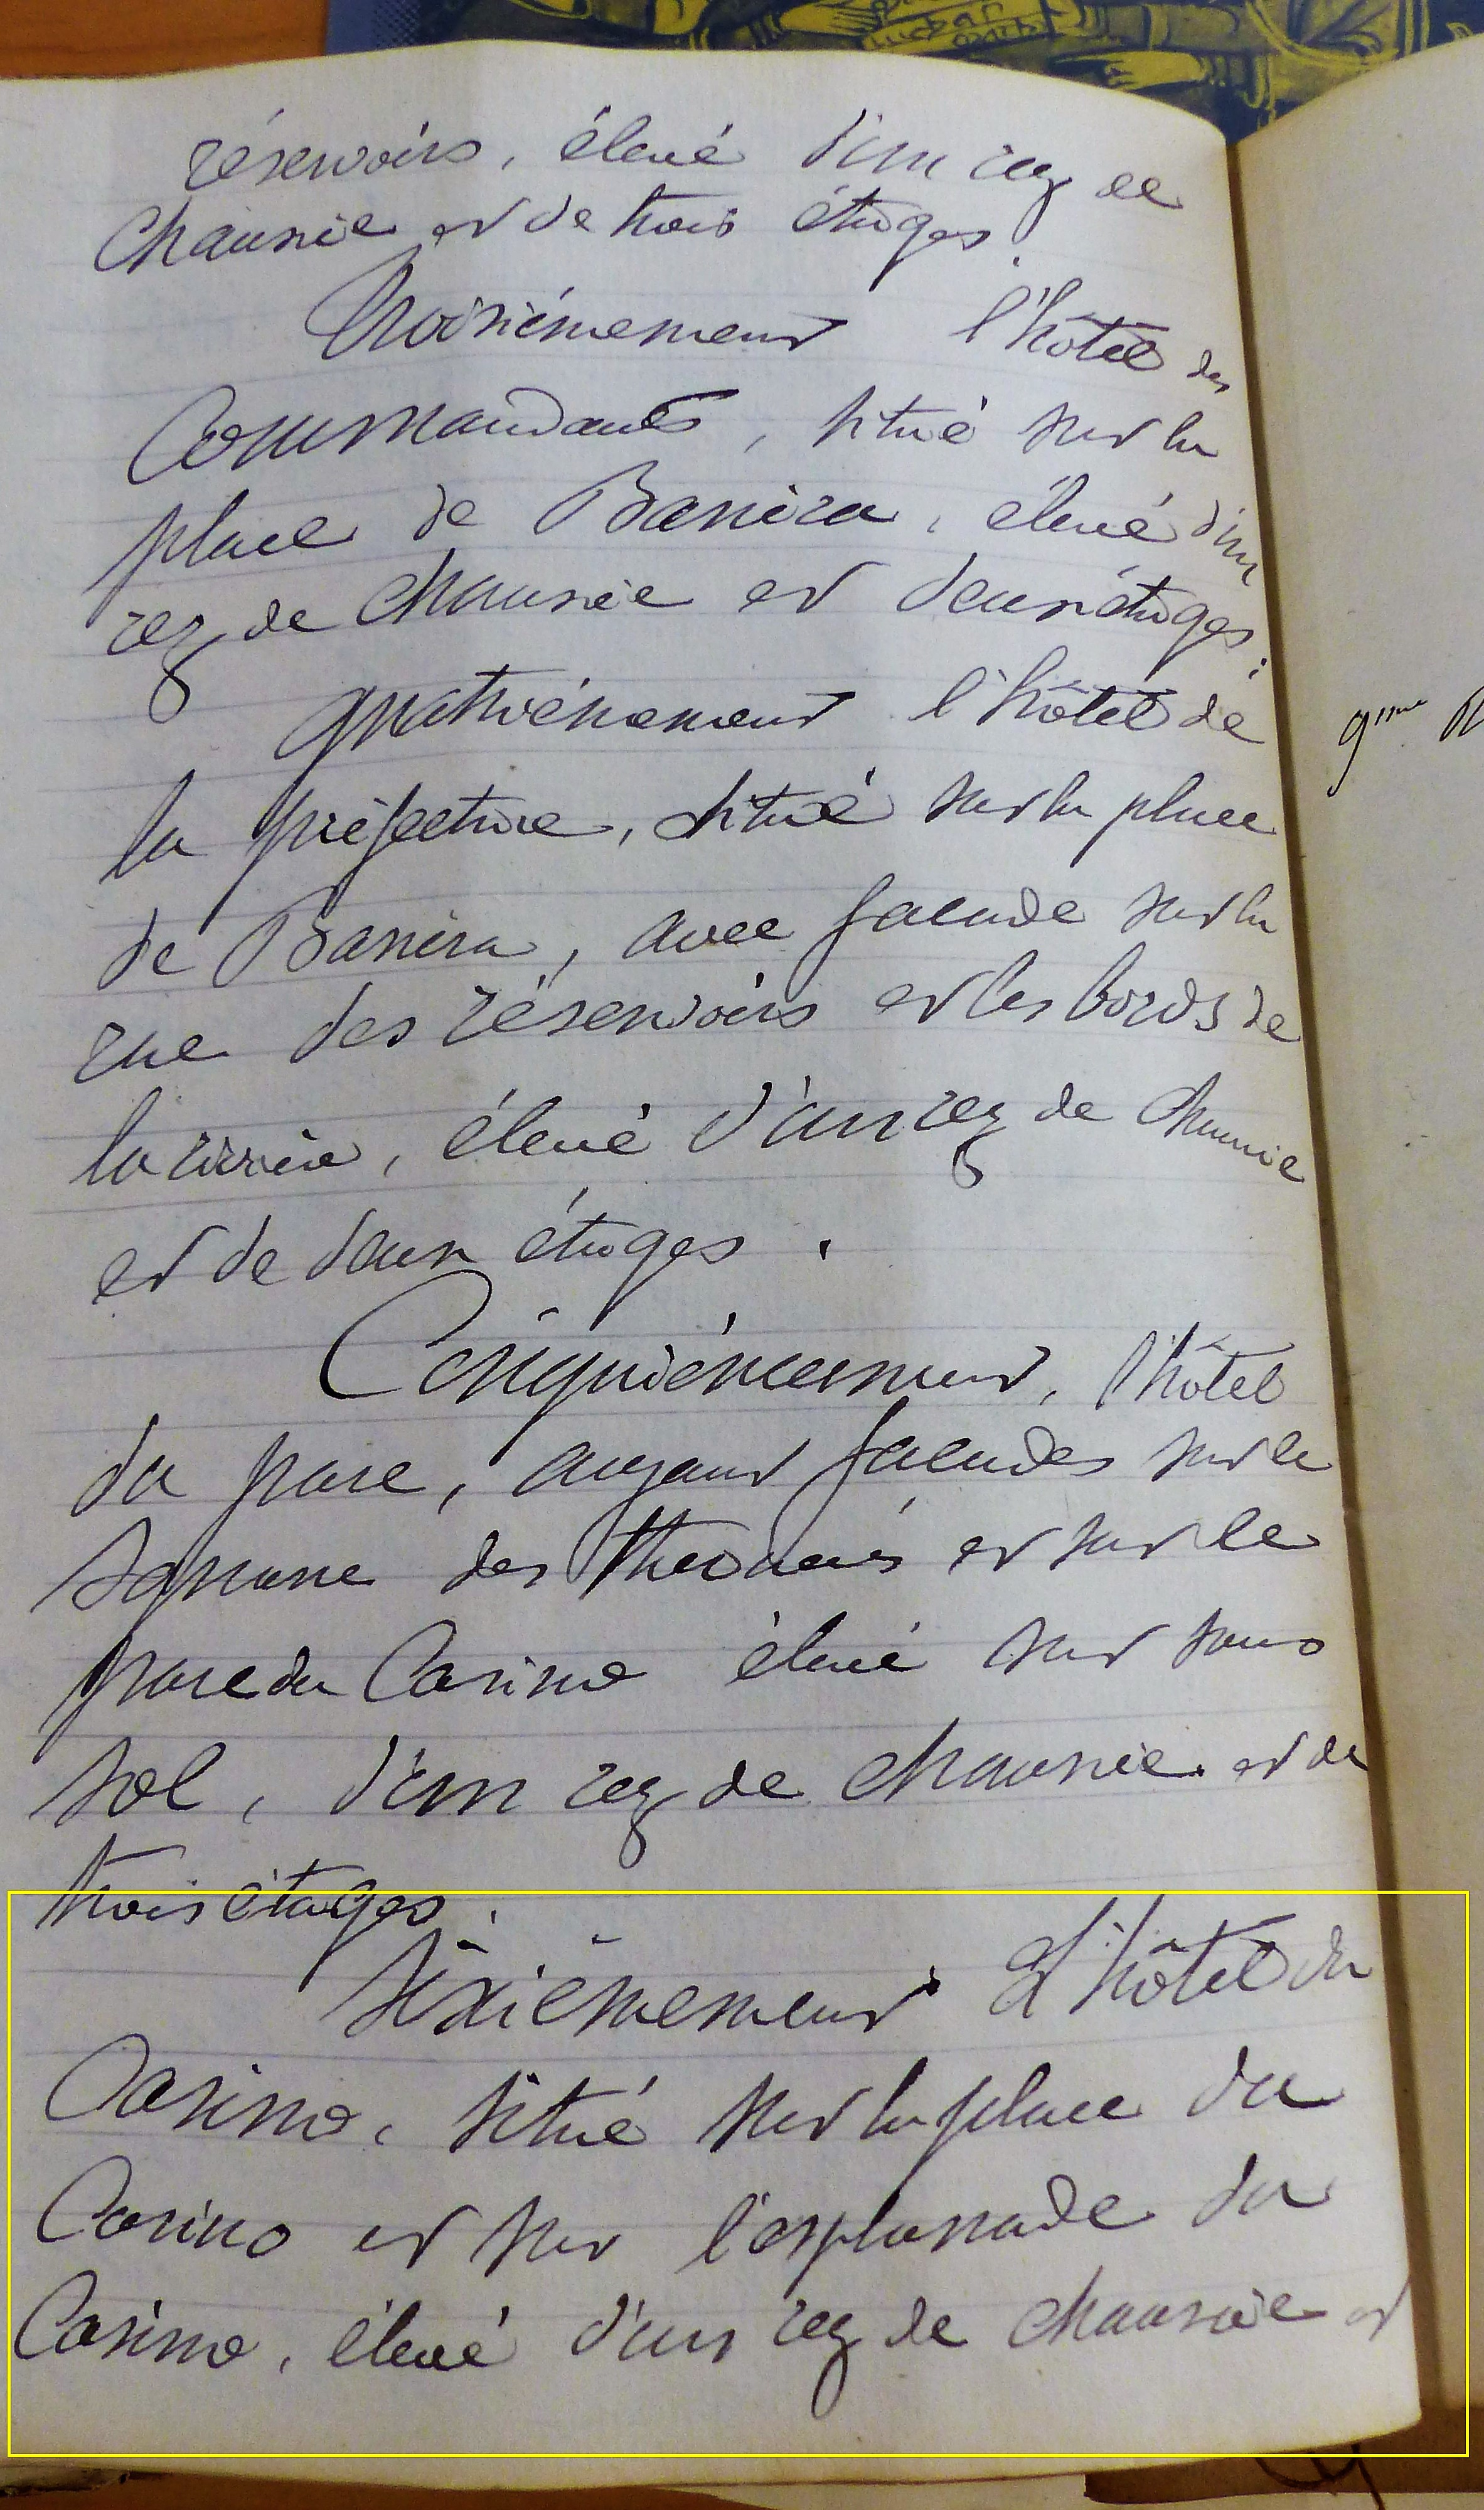 réservoirs, élevé d'un rez de
chaussée et de trois étages.
Troisièmement l'hôtel des
Commandants, situé sur la
place de Baniza, élevé d'un
rez de chaussée et deux étages :
quatrièmement l'hôtel de
la préfecture, situé sur la place
de Baniza, avec facade sur la
rue des réservoirs et les bords de
la rivière, élevé d'un rez de chaussée
et de deux étages.
Cinquièmement, l'hôtel
du parc, ayant facades sur le
square des thermes et sur le
parc du Casino élevé sur sous
sol, d'un rez de chaussée et de
trois étages.
Sixièmement L'hôtel du
Casino, situé sur la place du
Casino et sur l'esplanade du
Casino, élevé d'un rez de chaussée et
9eme